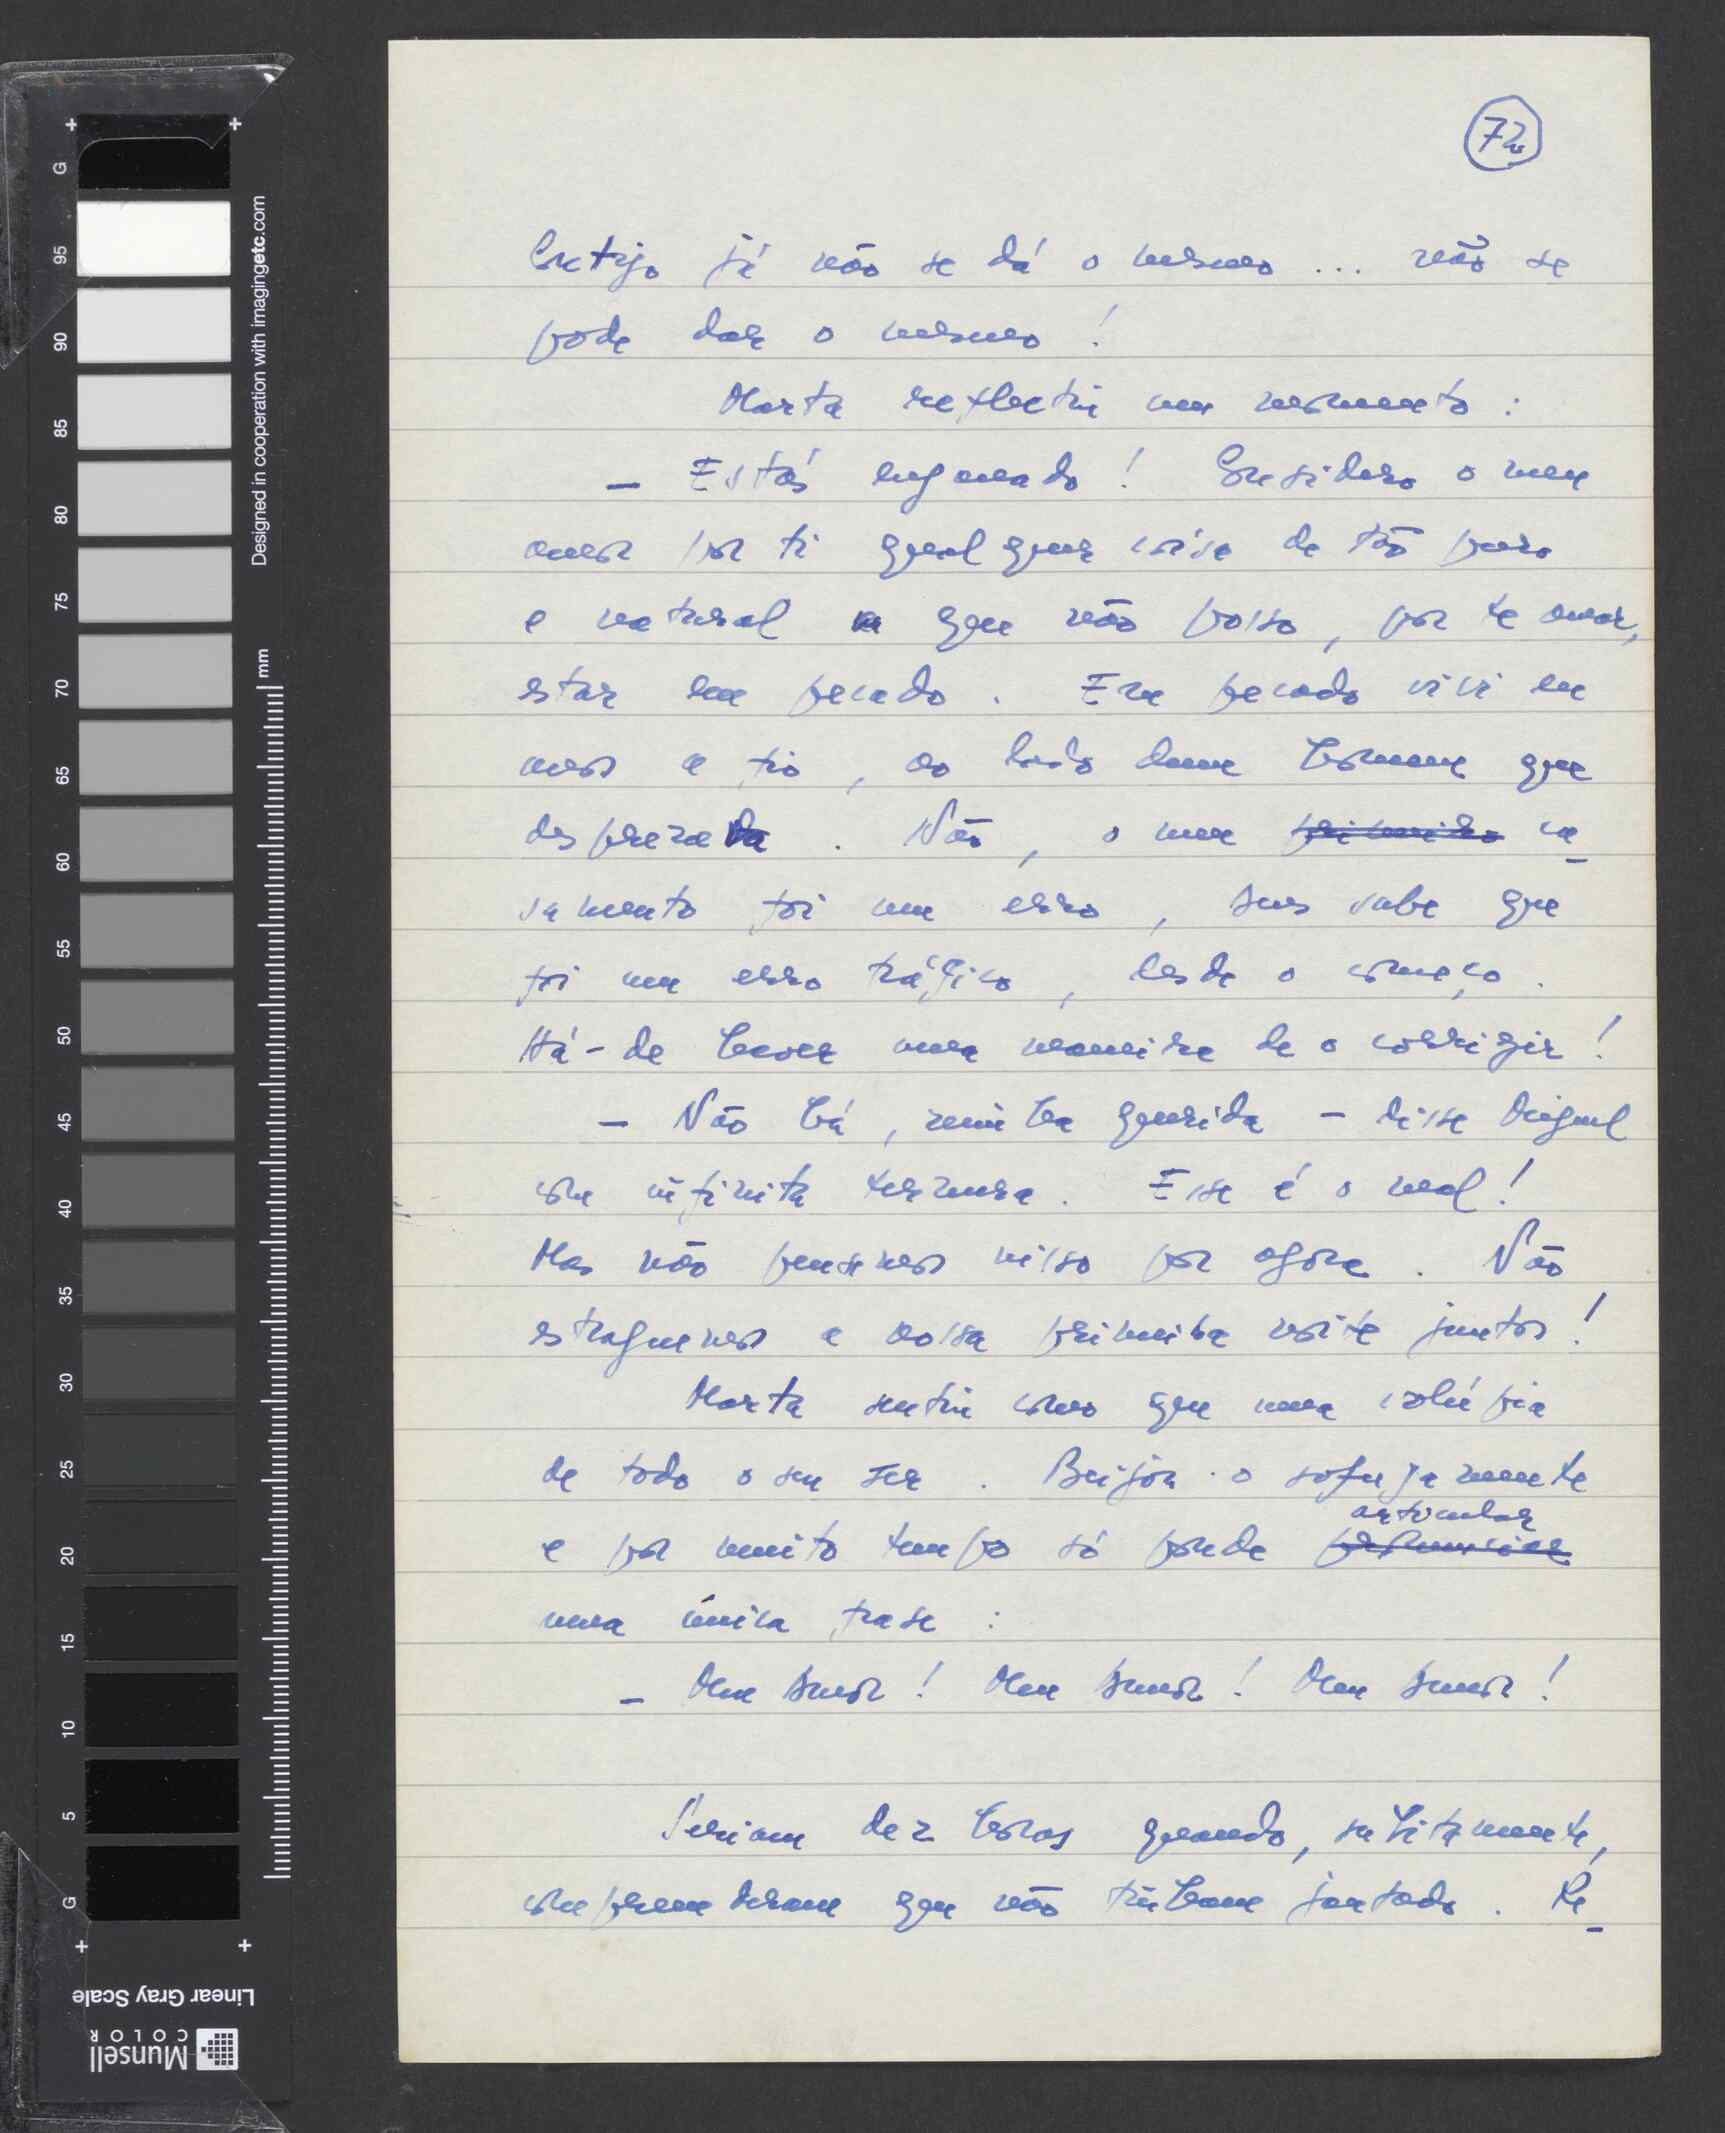 72
Contigo já não se dá o mesmo ... não se
pode dar o mesmo!
Marta reflectiu um momento:
— Estás enganado! Considero o meu
amor por ti qualquer coisa de tão puro
e natural que não posso, por te amar,
estar em pecado. Em pecado vivi eu
anos a fio, ao lado dum homem que
desprezava. Não, o meu primeiro ca-
samento foi um erro, Deus sabe que
foi um erro trágico, desde o começo.
Há-de haver uma maneira de o corrigir!
— Não há, minha querida — disse Miguel
com infinita ternura. Esse é o mal!
Mas não pensemos nisso por agora. Não
estraguemos a nossa primeira noite juntos!
Marta sentiu como que uma volúpia
de todo o seu ser. Beijou-o sofregamente
articular
e por muito tempo só poude pronunciar
uma única frase:
— Meu Amor! Meu Amor! Meu Amor!
Seriam dez horas quando, subitamente,
compreenderam que não tinham jantado. Re-
G
95
90
85
80
75
70
65
60
55
50
45
40
35
30
25
20
15
10
5
G
mm
Designed in cooperation with imagingetc.com
Linear Gray Scale
Munsell
COLOR